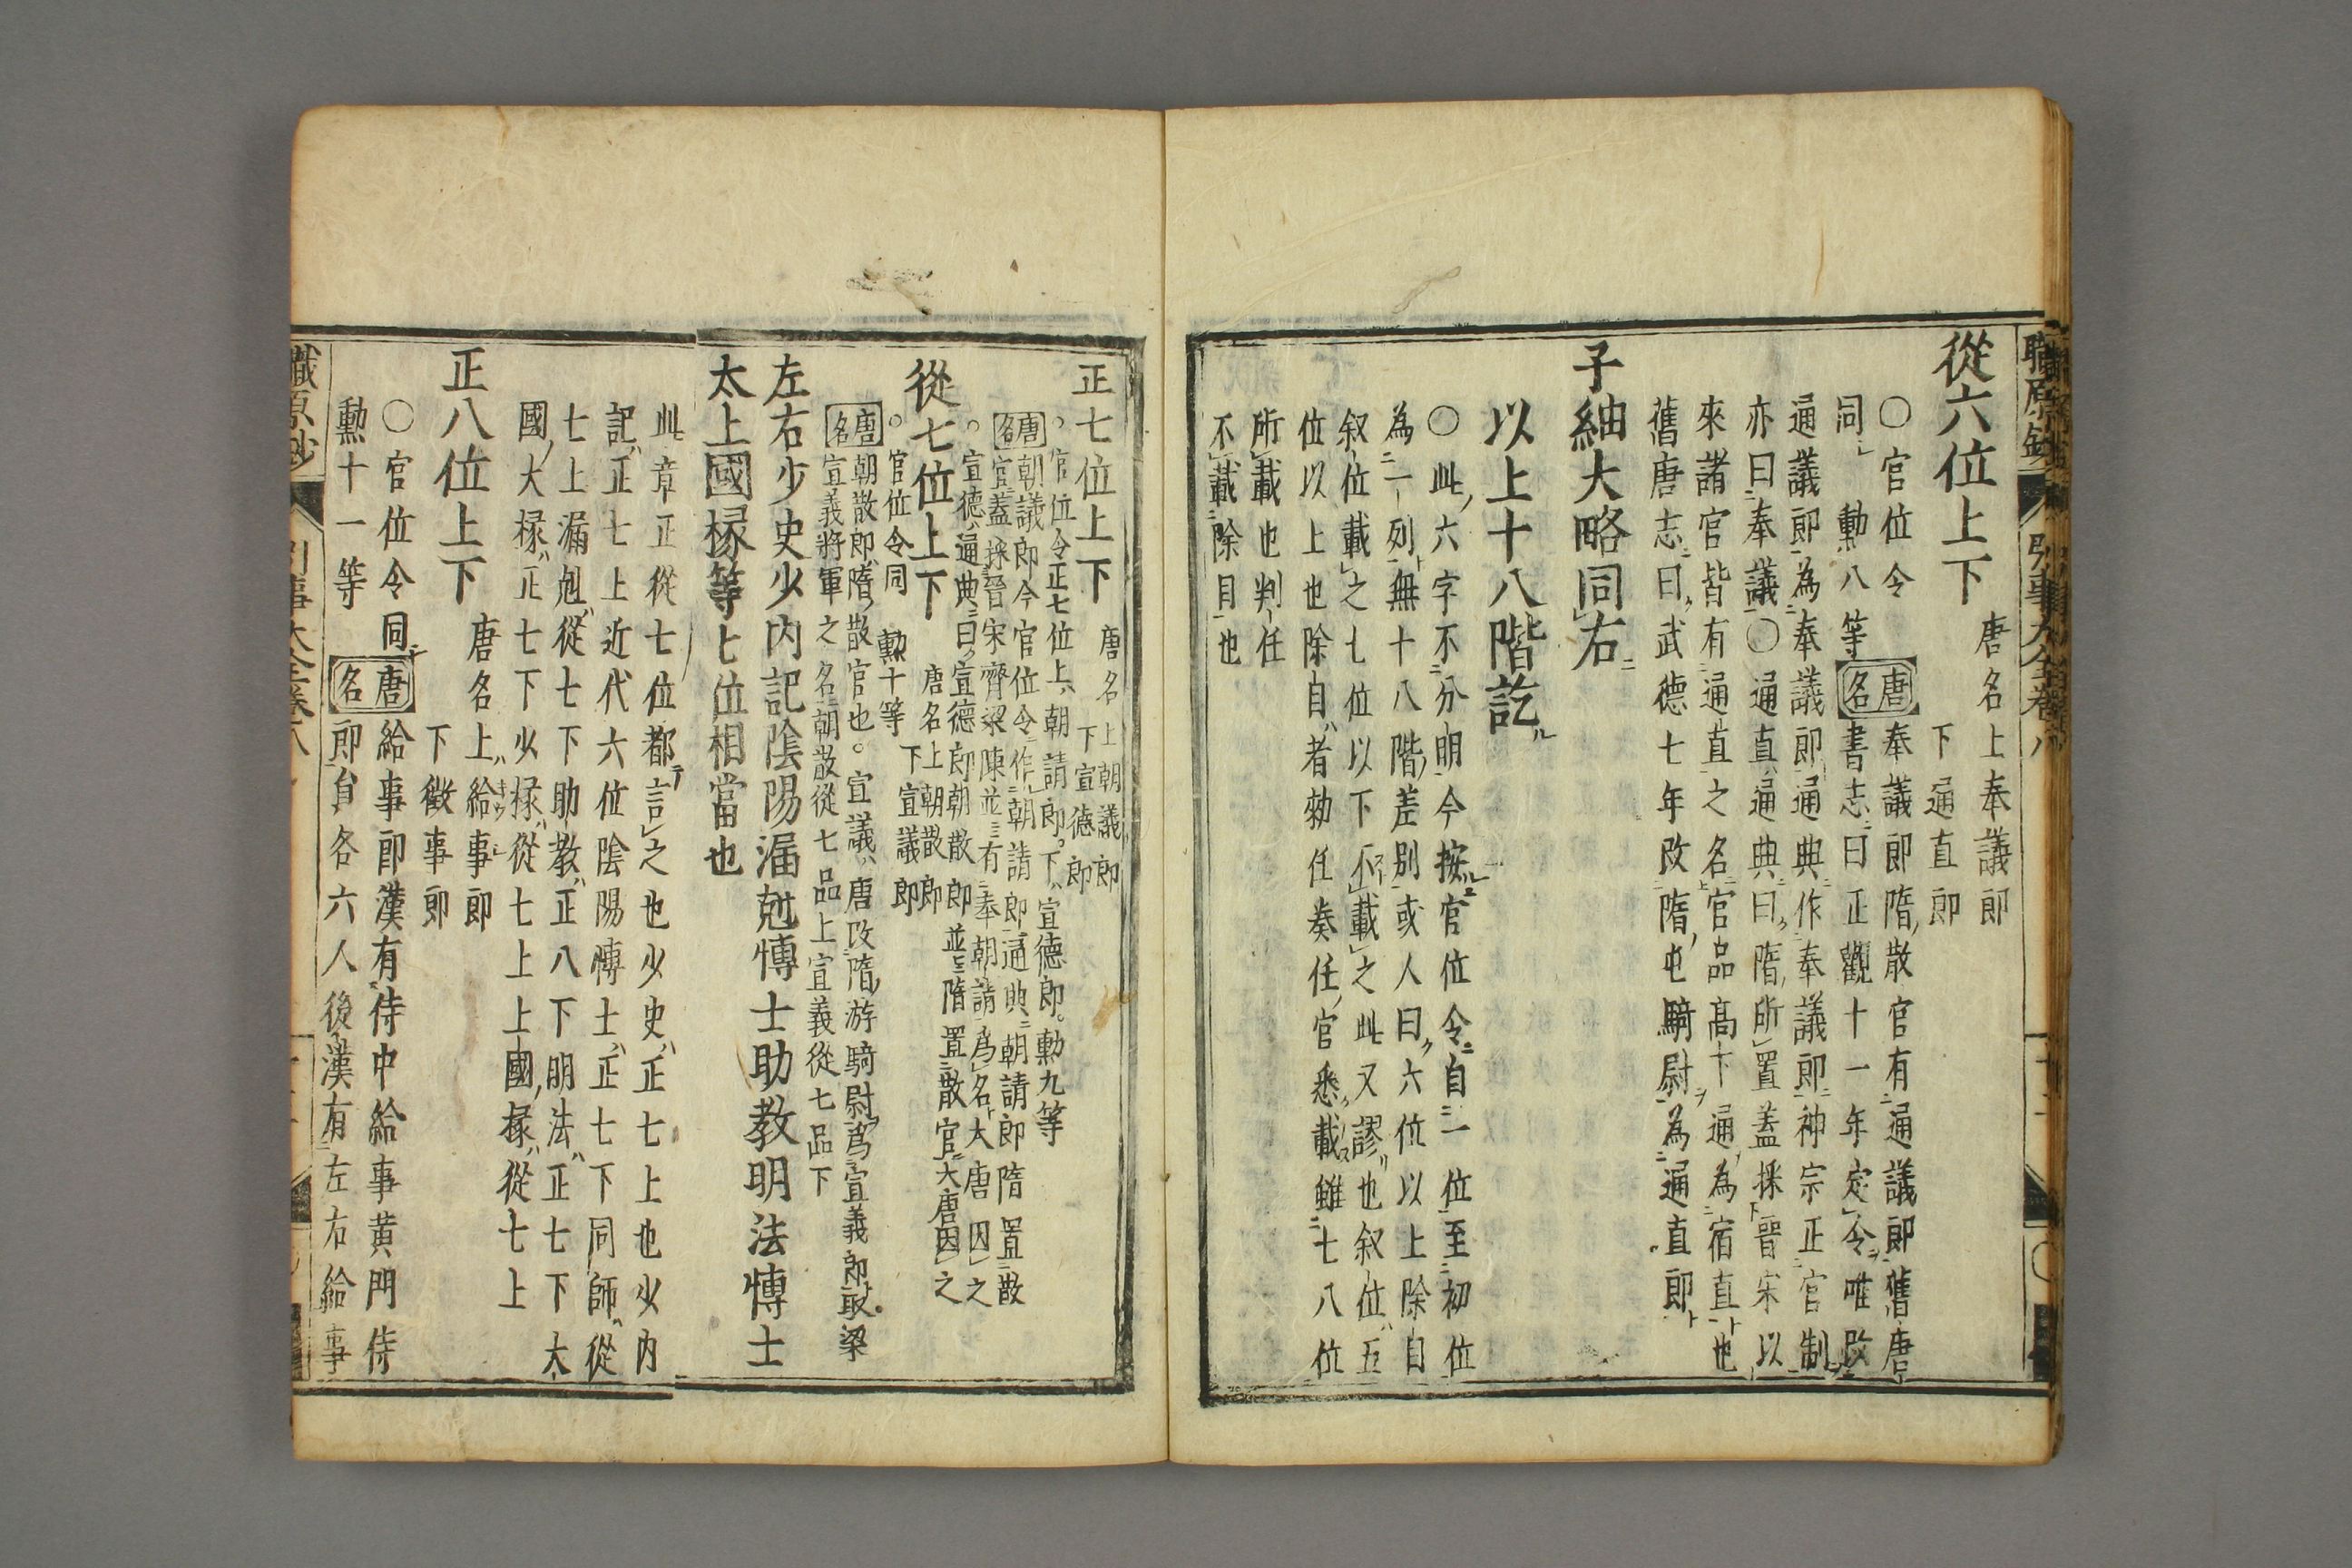 職原鈔 引事大全卷八
從六位上下 唐名上奉議郎
下通直郎
〇官位令 唐名 奉議郎隋散官有通議郎舊唐
同 勲八等 書志曰正觀十一年定令唯改
通議郎為奉議郎通典作奉議郎神宗正官制
亦曰奉議〇通直通典曰隋所置蓋採晉宋以
來諸官皆有通直之名官品高下通為宿直也
舊唐志曰武德七年改隋屯騎尉為通直郎
子細大略同右
以上十八階訖
〇此六字不分明今按官位令自一位至初位
為一列無十八階差別或人曰六位以上除自
叙位載之七位以下不載之此又謬也叙位五
位以上也除自者勑任奏任官悉載雖七八位
所載也判任
不載除目也
正七位上下 唐名上朝議郎
下宣德郎
官位令正七位上朝請郎下宣德郎勲九等
唐名 朝議郎今官位令作朝請郎通典朝請郎隋置散
官蓋採晉宋齊梁陳並有奉朝請為名大唐因之
宣德通典曰宣德郎朝散郎並隋置散官大唐因之
從七位上下 唐名上朝散郎
下宣議郎
官位令同 勲十等
唐名 朝散郎隋散官也。宣議唐改隋游騎尉為宣義郎取梁
宣義將軍之名朝散從七品上宣義從七品下
左右少史少内記陰陽漏尅愽士助教明法愽士
太上國掾等七位相當也
此章正從七位都言之也少史正七上也少内
記正七上近代六位陰陽愽士正七下同師從
七上漏尅從七下助教正八下明法正七下大
國大掾正七下少掾從七上上國掾從七上
正八位上下 唐名上給事郎
下徵事郎
〇官位令同 唐名 給事郎漢有侍中給事黄門侍
勲十一等 郎員各六人後漢有左右給事
職原鈔 引事大全卷八